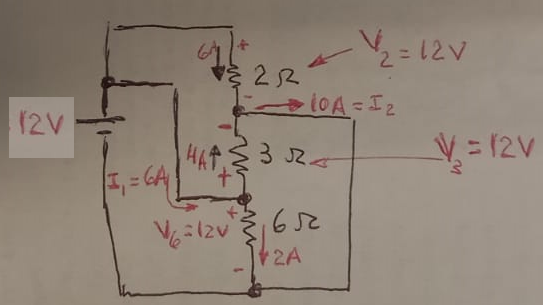 6A + 2Ω V₂ = 12V
- 10A = I₂
12V
-
4A 3Ω V₃ = 12V
+
I₁ = 6A
+
V₆ = 12V 6Ω
2A
-